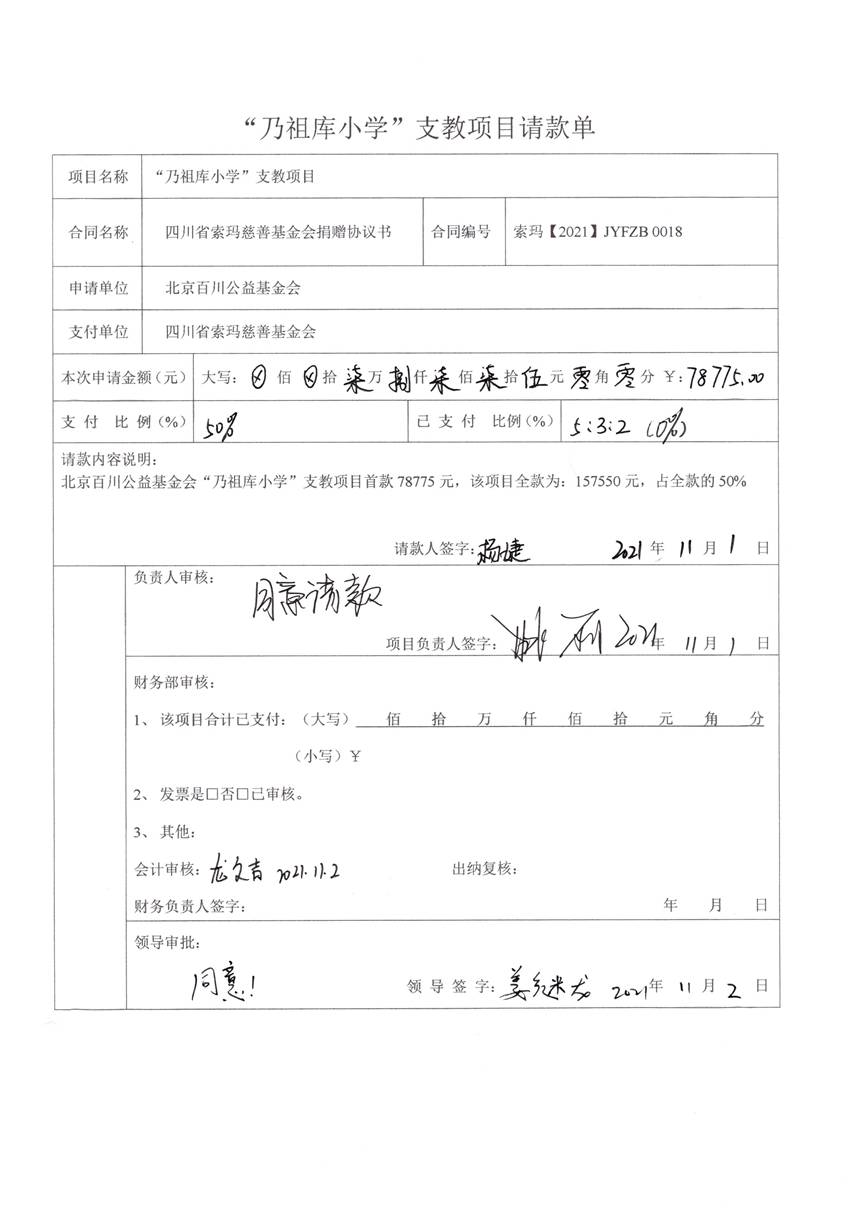 “乃祖库小学”支教项目请款单
项目名称 “乃祖库小学”支教项目
合同名称 四川省索玛慈善基金会捐赠协议书 合同编号 索玛【2021】JYFZB 0018
申请单位 北京百川公益基金会
支付单位 四川省索玛慈善基金会
本次申请金额（元） 大写：⊗佰⊗拾柒万捌仟柒佰柒拾伍元零角零分 ￥:78775.00
支付 比例(%) 50% 已支付 比例(%) 5:3:2 (0%)
请款内容说明：
北京百川公益基金会“乃祖库小学”支教项目首款 78775 元，该项目全款为：157550 元，占全款的 50%
请款人签字：杨婕 2021 年 11 月 1 日
负责人审核：
同意请款
项目负责人签字： 2021年 11月 1 日
财务部审核：
1、 该项目合计已支付：（大写） 佰 拾 万 仟 佰 拾 元 角 分
（小写）￥
2、 发票是□否□已审核。
3、 其他：
会计审核：龙文吉 2021.11.2 出纳复核：
财务负责人签字： 年 月 日
领导审批：
同意！
领 导 签 字： 2021年 11 月 2 日